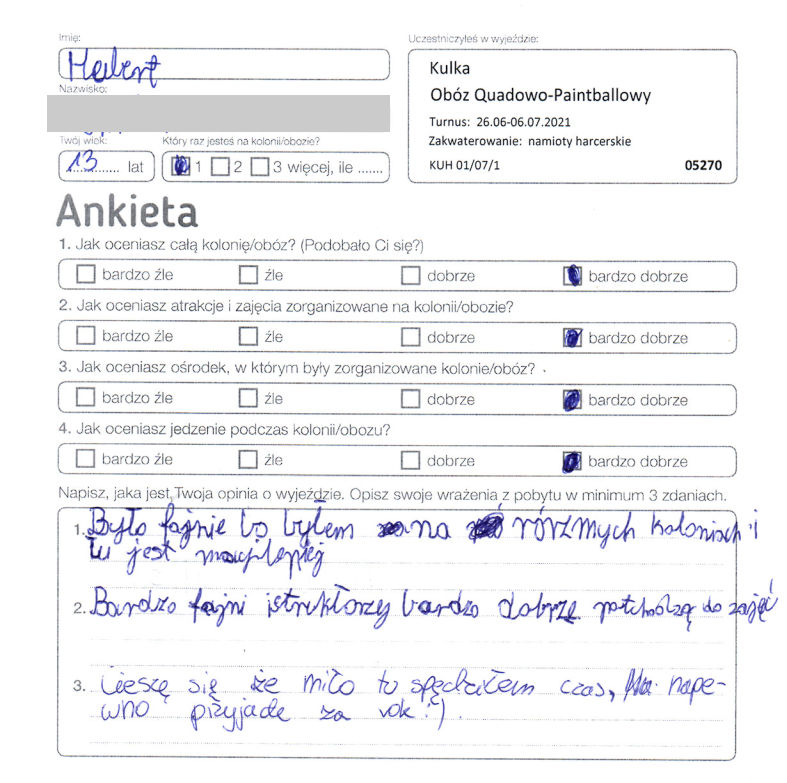 Imię:
Uczestniczyłeś w wyjeździe:
Hebert
Kulka
Obóz Quadowo-Paintballowy
Turnus: 26.06-06.07.2021
Zakwaterowanie: namioty harcerskie
KUH 01/07/1 05270
Nazwisko:
Twój wiek: Który raz jesteś na kolonii/obozie?
13 lat 1 2 3 więcej, ile .......
Ankieta
1. Jak oceniasz całą kolonię/obóz? (Podobało Ci się?)
bardzo źle źle dobrze bardzo dobrze
2. Jak oceniasz atrakcje i zajęcia zorganizowane na kolonii/obozie?
bardzo źle źle dobrze bardzo dobrze
3. Jak oceniasz ośrodek, w którym były zorganizowane kolonie/obóz?
bardzo źle źle dobrze bardzo dobrze
4. Jak oceniasz jedzenie podczas kolonii/obozu?
bardzo źle źle dobrze bardzo dobrze
Napisz, jaka jest Twoja opinia o wyjeździe. Opisz swoje wrażenia z pobytu w minimum 3 zdaniach.
1. Było fajnie bo byłem na rórzmych koloniach i
tu jest najlepiej
2. Bardzo fajni istruktorzy bardzo dobrze potchodzą do zajęć
3. Cieszę się że miło tu spędziłem czas, nape-
wno przyjadę za rok :)